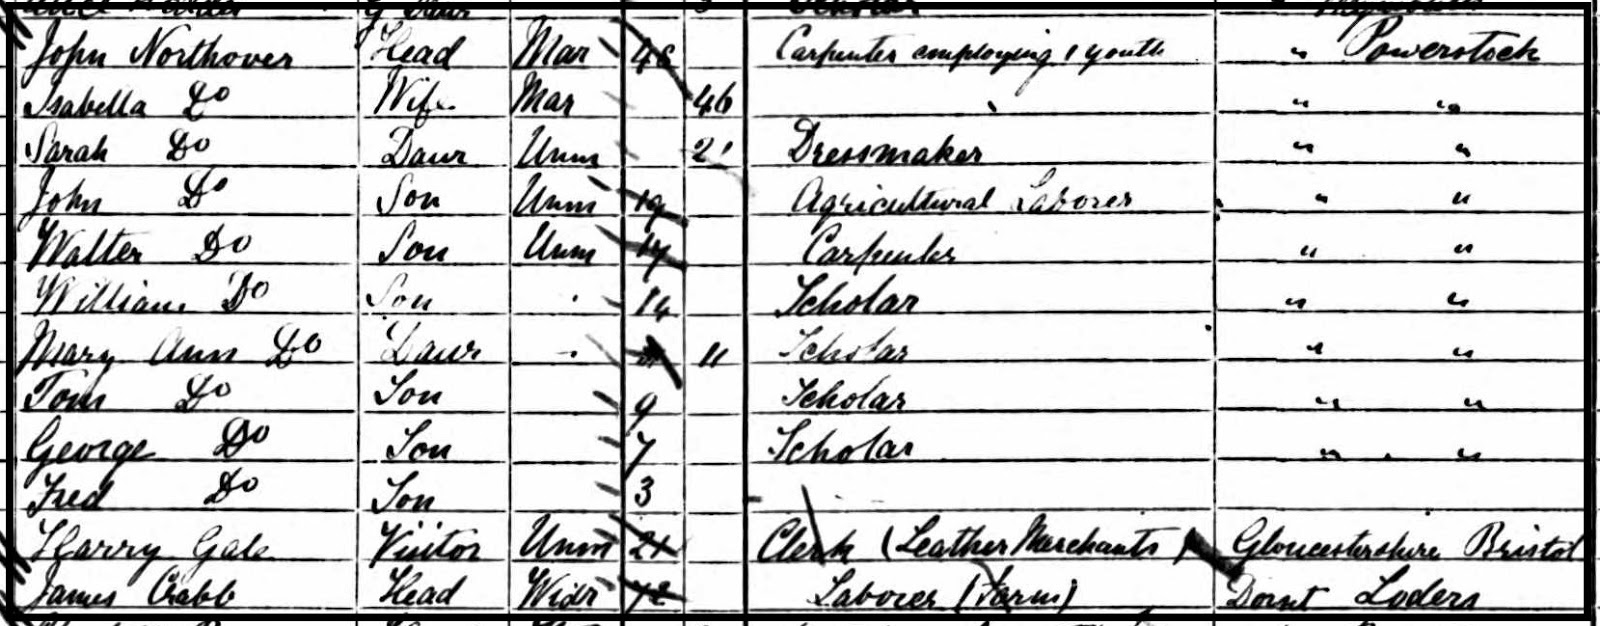 John Northover Head Mar 46 Carpenter employing 1 youth " Powerstock
Isabella Do Wife Mar 46 " "
Sarah Do Daur Unm 21 Dressmaker " "
John Do Son Unm 19 Agricultural Laborer " "
Walter Do Son Unm 17 Carpenter " "
William Do Son 14 Scholar " "
Mary Ann Do Daur 11 Scholar " "
Tom Do Son 9 Scholar " "
George Do Son 7 Scholar " "
Fred Do Son 3
Harry Gale Visitor Unm 21 Clerk (Leather Merchants) Gloucestershire Bristol
James Crabb Head Widr 72 Laborer (Farm) Dorset Loders